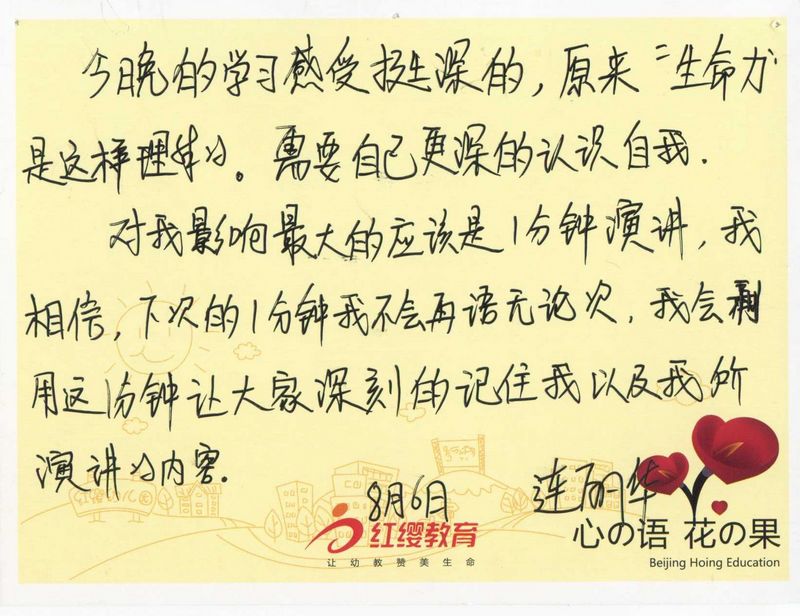 今日晚的学习感受挺深的，原来“生命力
是这样理解的。需要自己更深的认识自我.
对我影响最大的应该是1分钟演讲，我
相信，下次的1分钟我不会再语无论次，我会利
用这1分钟让大家深刻的记住我以及我所
演讲的内容.
8月6日 连丽华
红缨教育
让幼教赞美生命
心の语 花の果
Beijing Hoing Education